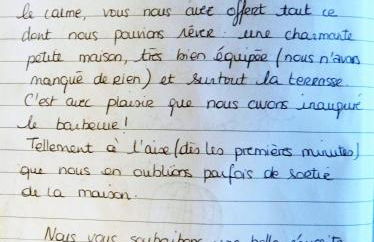 le calme, vous nous avez offert tout ce
dont nous pouvions rêver : une charmante
petite maison, très bien équipée (nous n'avons
manqué de rien) et surtout la terrasse.
C'est avec plaisir que nous avons inauguré
le barbecue !
Tellement à l'aise (dès les premières minutes)
que nous en oublions parfois de sortir
de la maison.
Nous vous souhaitons une belle réussite